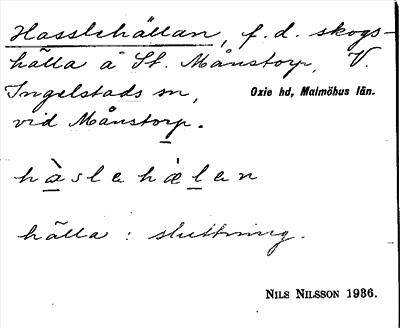 Hasslehällan, f. d. skogs-
hälla å St. Månstorp, V.
Ingelstads sn, Oxie hd, Malmöhus län.
vid Månstorp.
hàslehä̀len
hälla : sluttning.
NILS NILSSON 1936.